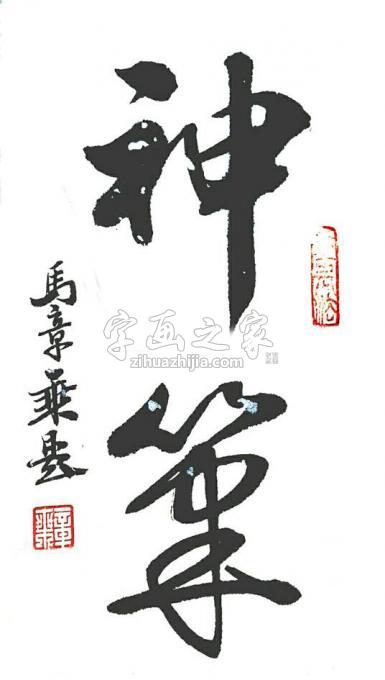 神筆
馬章乘
章乘
字画之家
zihuazhijia.com